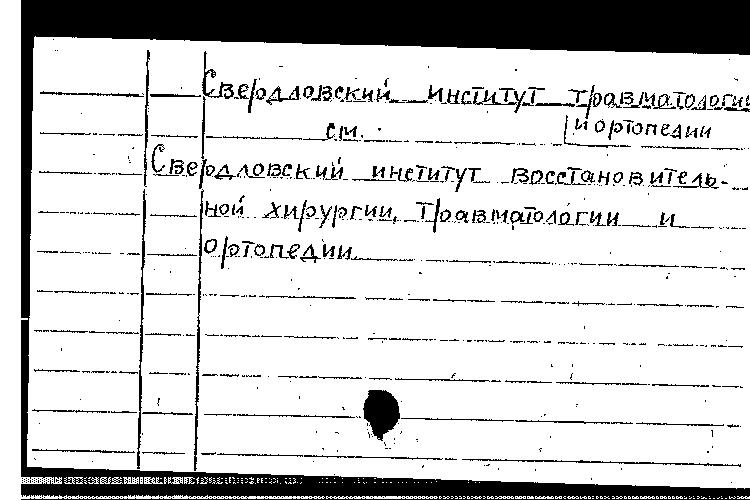 Свердловский институт травматологии
и ортопедии
см.
Свердловский институт восстановитель-
ной хирургии, травматологии и
ортопедии.